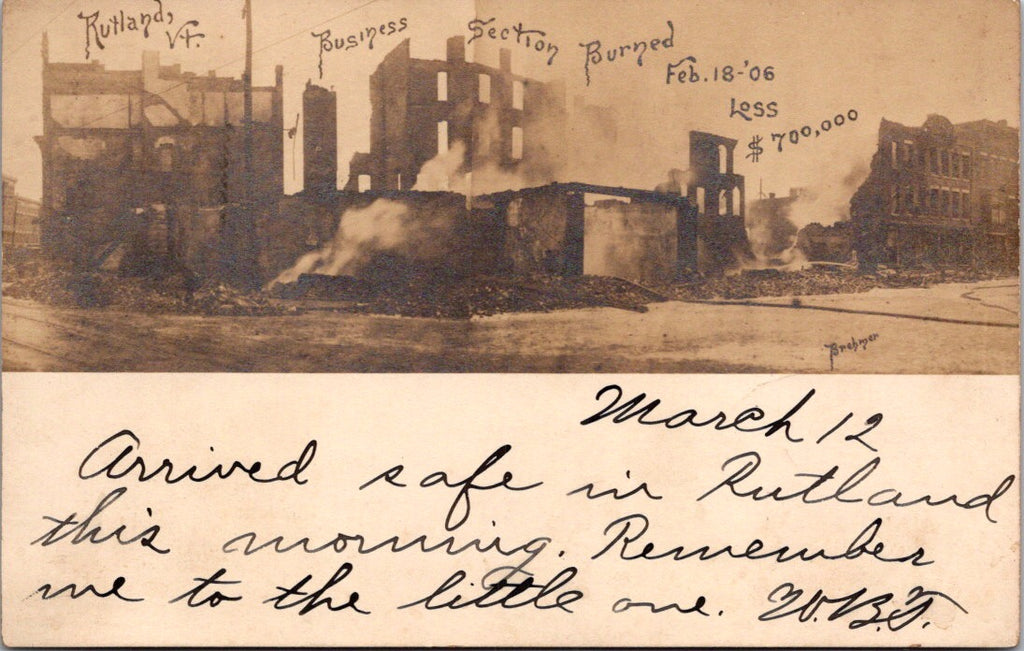 Rutland, Vt. Business Section Burned
Feb. 18-'06
Loss
$700,000
Brehmer
March 12
Arrived safe in Rutland
this morning. Remember
me to the little one. W.B.T.